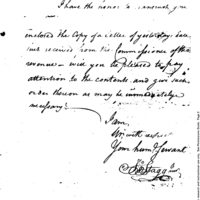 I have the honor to transmit you
inclosed the Copy of a letter of yesterday's date
just received from the Commissioner of the
revenue – will you be pleased to pay
attention to the contents and give such
orders thereon as may be immediately
necessary.
I am,
Sir, with respect
Your hum. Servant
Jno Stagg Jr